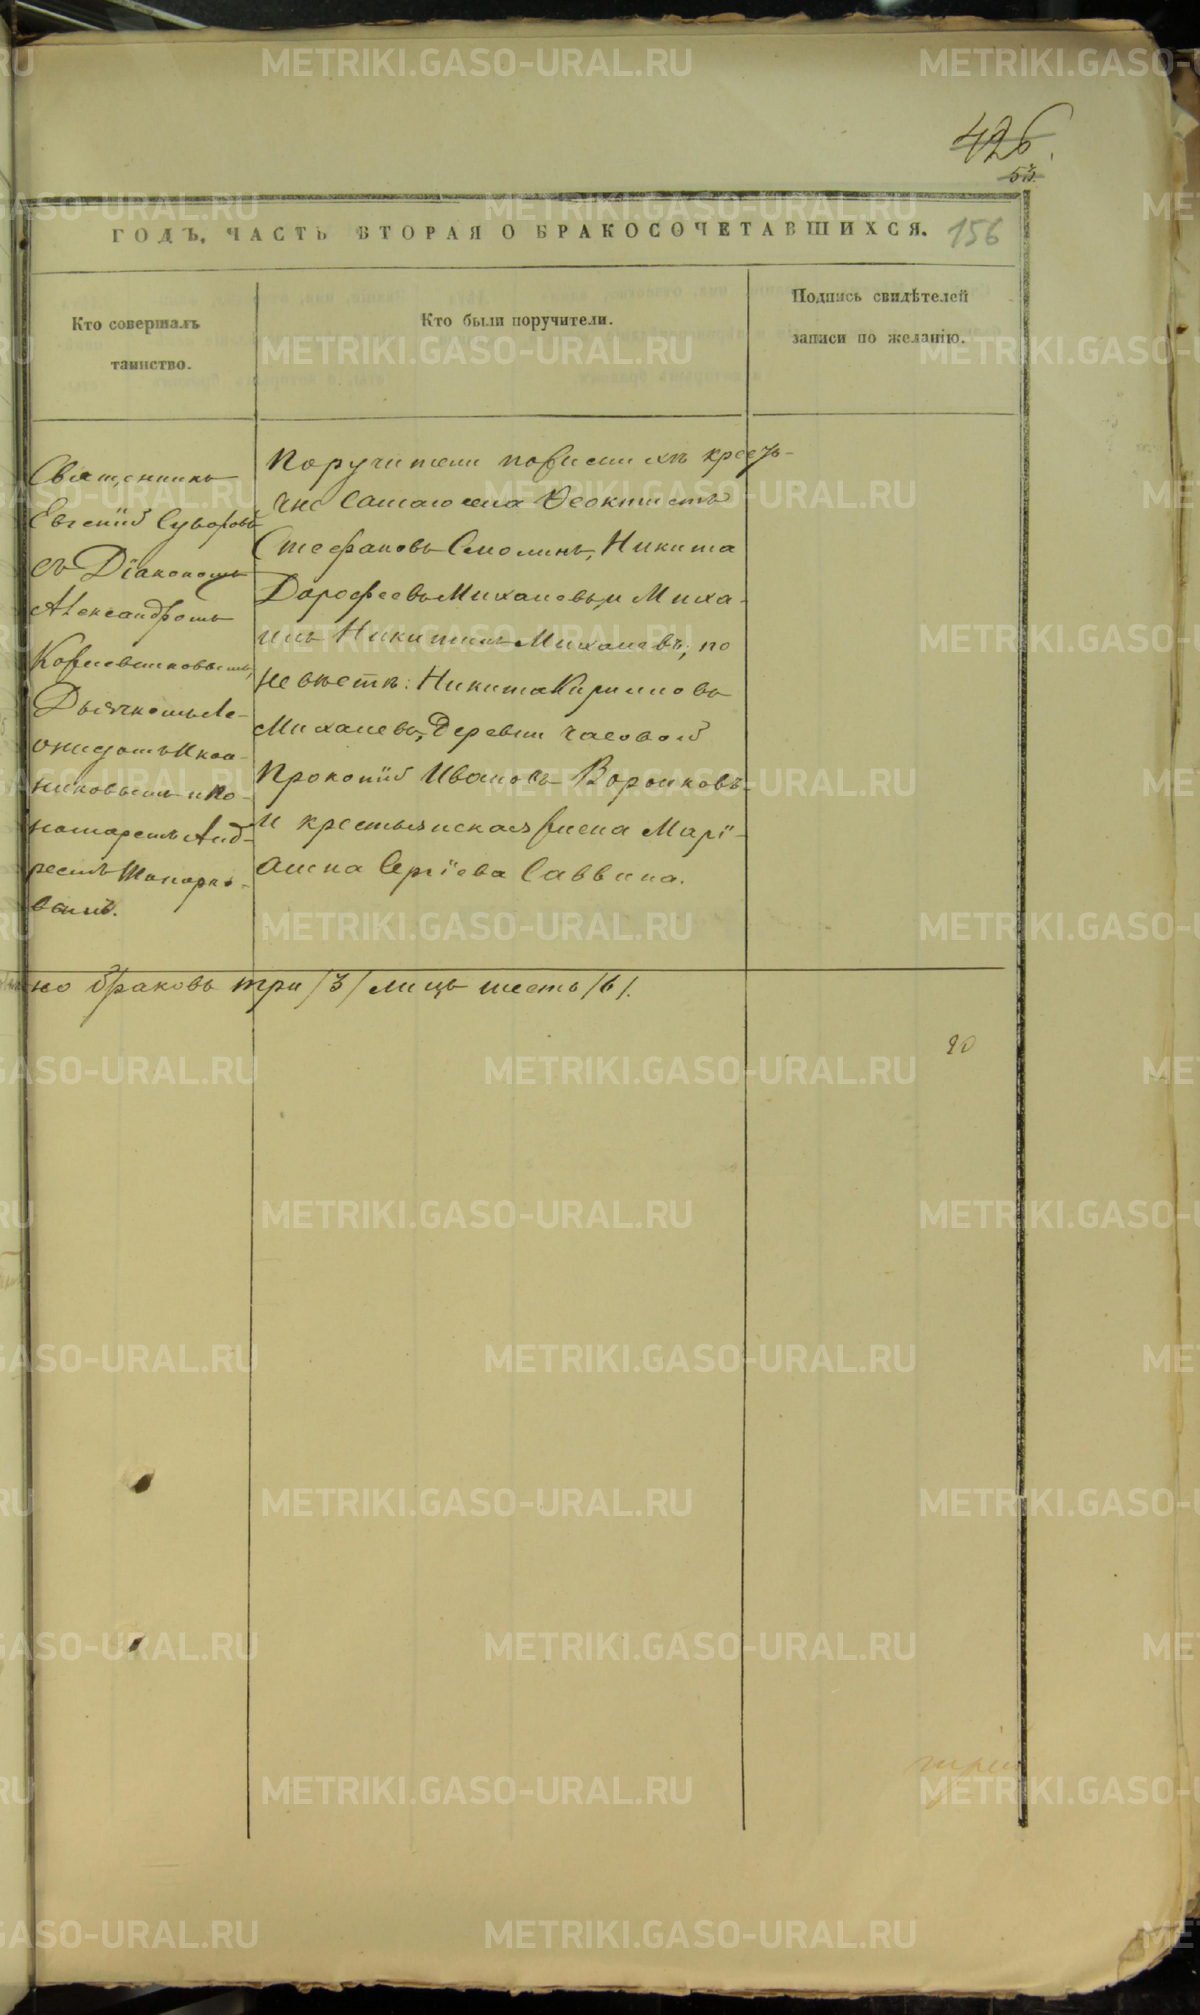 426.
53
ГОДЪ, ЧАСТЬ ВТОРАЯ О БРАКОСОЧЕТАВШИХСЯ.
156
Кто совершалъ
таинство.
Кто были поручители.
Подпись свидѣтелей
записи по желанію.
Священникъ
Евгеній Суворовъ
съ Діакономъ
Александромъ
Дьячкомъ Ле-
онидомъ
и По-
номаремъ Анд-
реемъ Топорко-
вымъ.
Поручители по женихѣ крестья-
не Стефановъ Смолинъ, Никита
Дорофеевъ Михалевъ, и Миха-
илъ Никитинъ Михалевъ; по
невѣстѣ: Никита Кирилловъ
Михалевъ, Деревни Часовой
Прокопій Ивановъ Воронковъ
и крестьянская жена Марі-
амна Сергіева Саввина.
но браковъ три /3/ лицъ шесть /6/.
METRIKI.GASO-URAL.RU